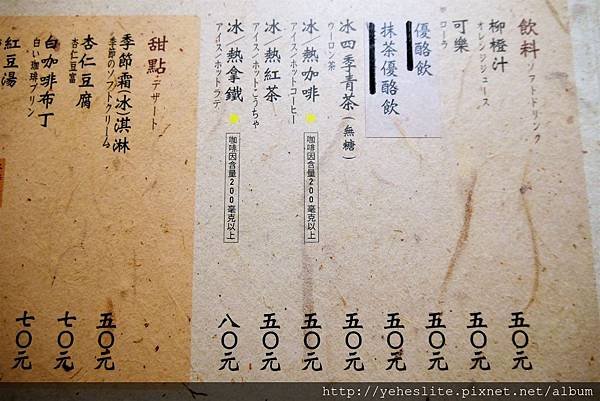 飲料 ソフトドリンク
柳橙汁 五〇元
オレンジジュース
可樂 五〇元
コーラ
優酪飲 五〇元
抹茶優酪飲 五〇元
冰四季青茶(無糖) 五〇元
ウーロン茶
冰/熱咖啡 五〇元
アイス/ホットコーヒー
咖啡因含量200毫克以上
冰/熱紅茶 五〇元
アイス/ホットこうちゃ
冰/熱拿鐵 八〇元
アイス/ホットラテ
咖啡因含量200毫克以上
甜點 デザート
季節霜(冰)淇淋 五〇元
季節のソフトクリーム
杏仁豆腐
杏仁豆富
白咖啡布丁 七〇元
白い珈琲プリン
紅豆湯 七〇元
http://yeheslite.pixnet.net/album